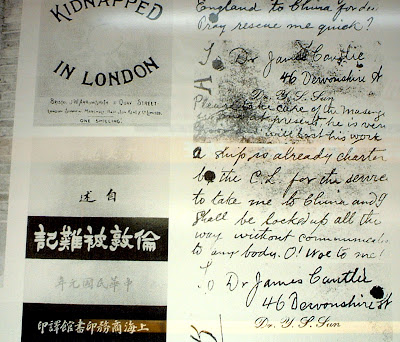 KIDNAPPED
IN LONDON
BRISTOL: J.W. ARROWSMITH, 11 QUAY STREET
LONDON: SIMPKIN, MARSHALL, HAMILTON, KENT & CO. LIMITED
ONE SHILLING.
述自
記難被敦倫
年元國民華中
印譯館書印務商海上
England to China for
Pray rescue me quick?
To Dr James Cantlie
46 Devonshire St
Dr. Y. S. Sun
Please take care of the
at present, he is very
will lost his work
A ship is already charter
by the C.L. for the service
to take me to China and I
shall be locked up all the
way without communicat
to any body. O! Woe to me!
To Dr James Cantlie
46 Devonshire St
Dr. Y. S. Sun